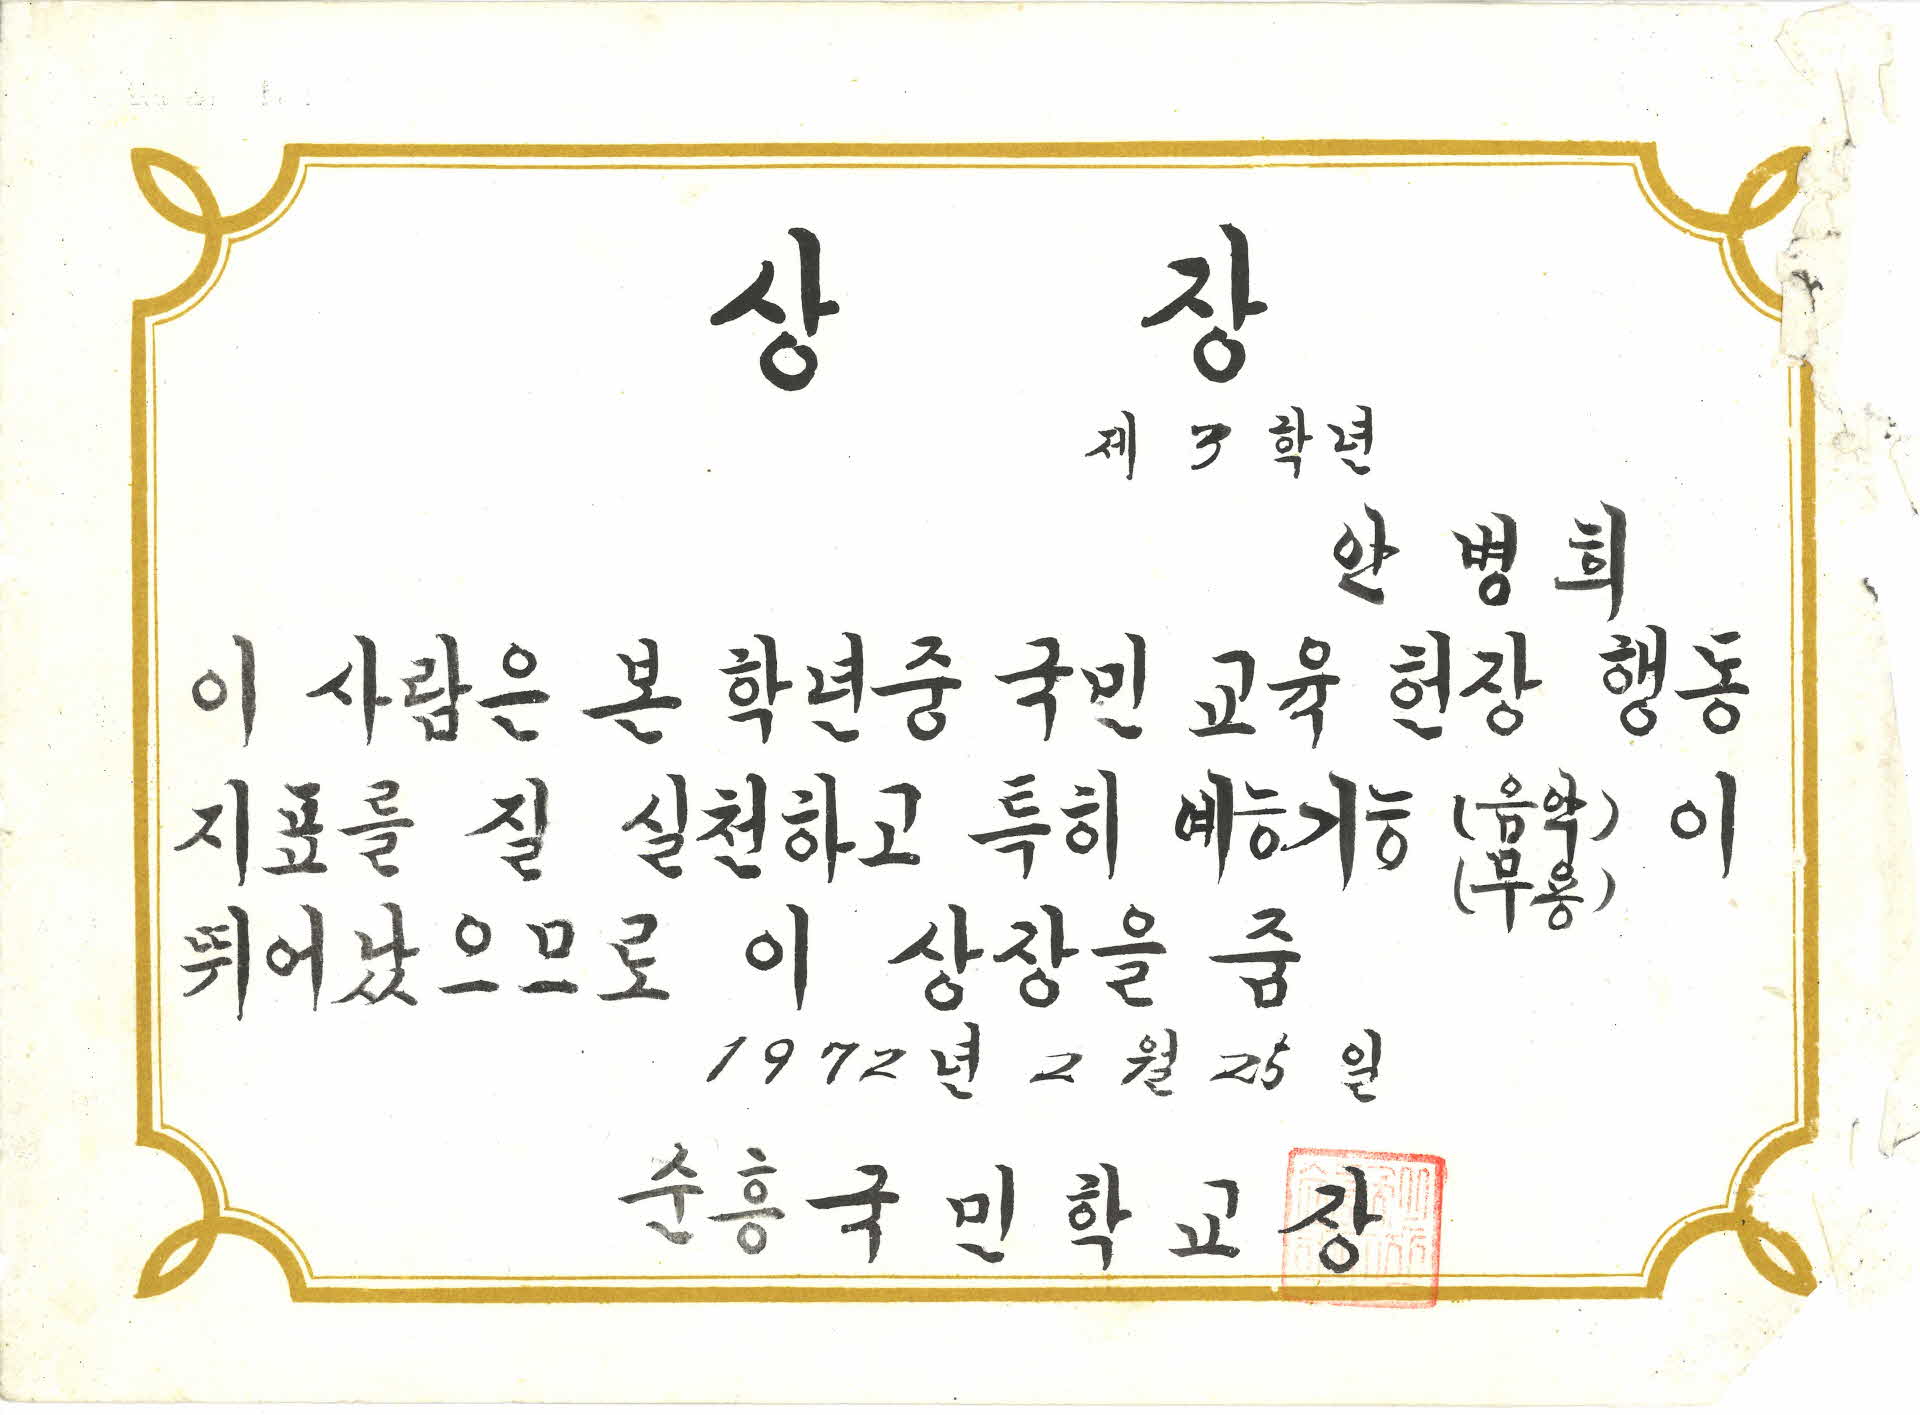 상 장
제 3 학년
안 병 희
이 사람은 본 학년중 국민 교육 헌장 행동
지표를 질 실천하고 특히 예능기능 (음악) 이
(무용)
뛰어났으므로 이 상장을 줌
1972년 2월 25일
순흥국민학교장